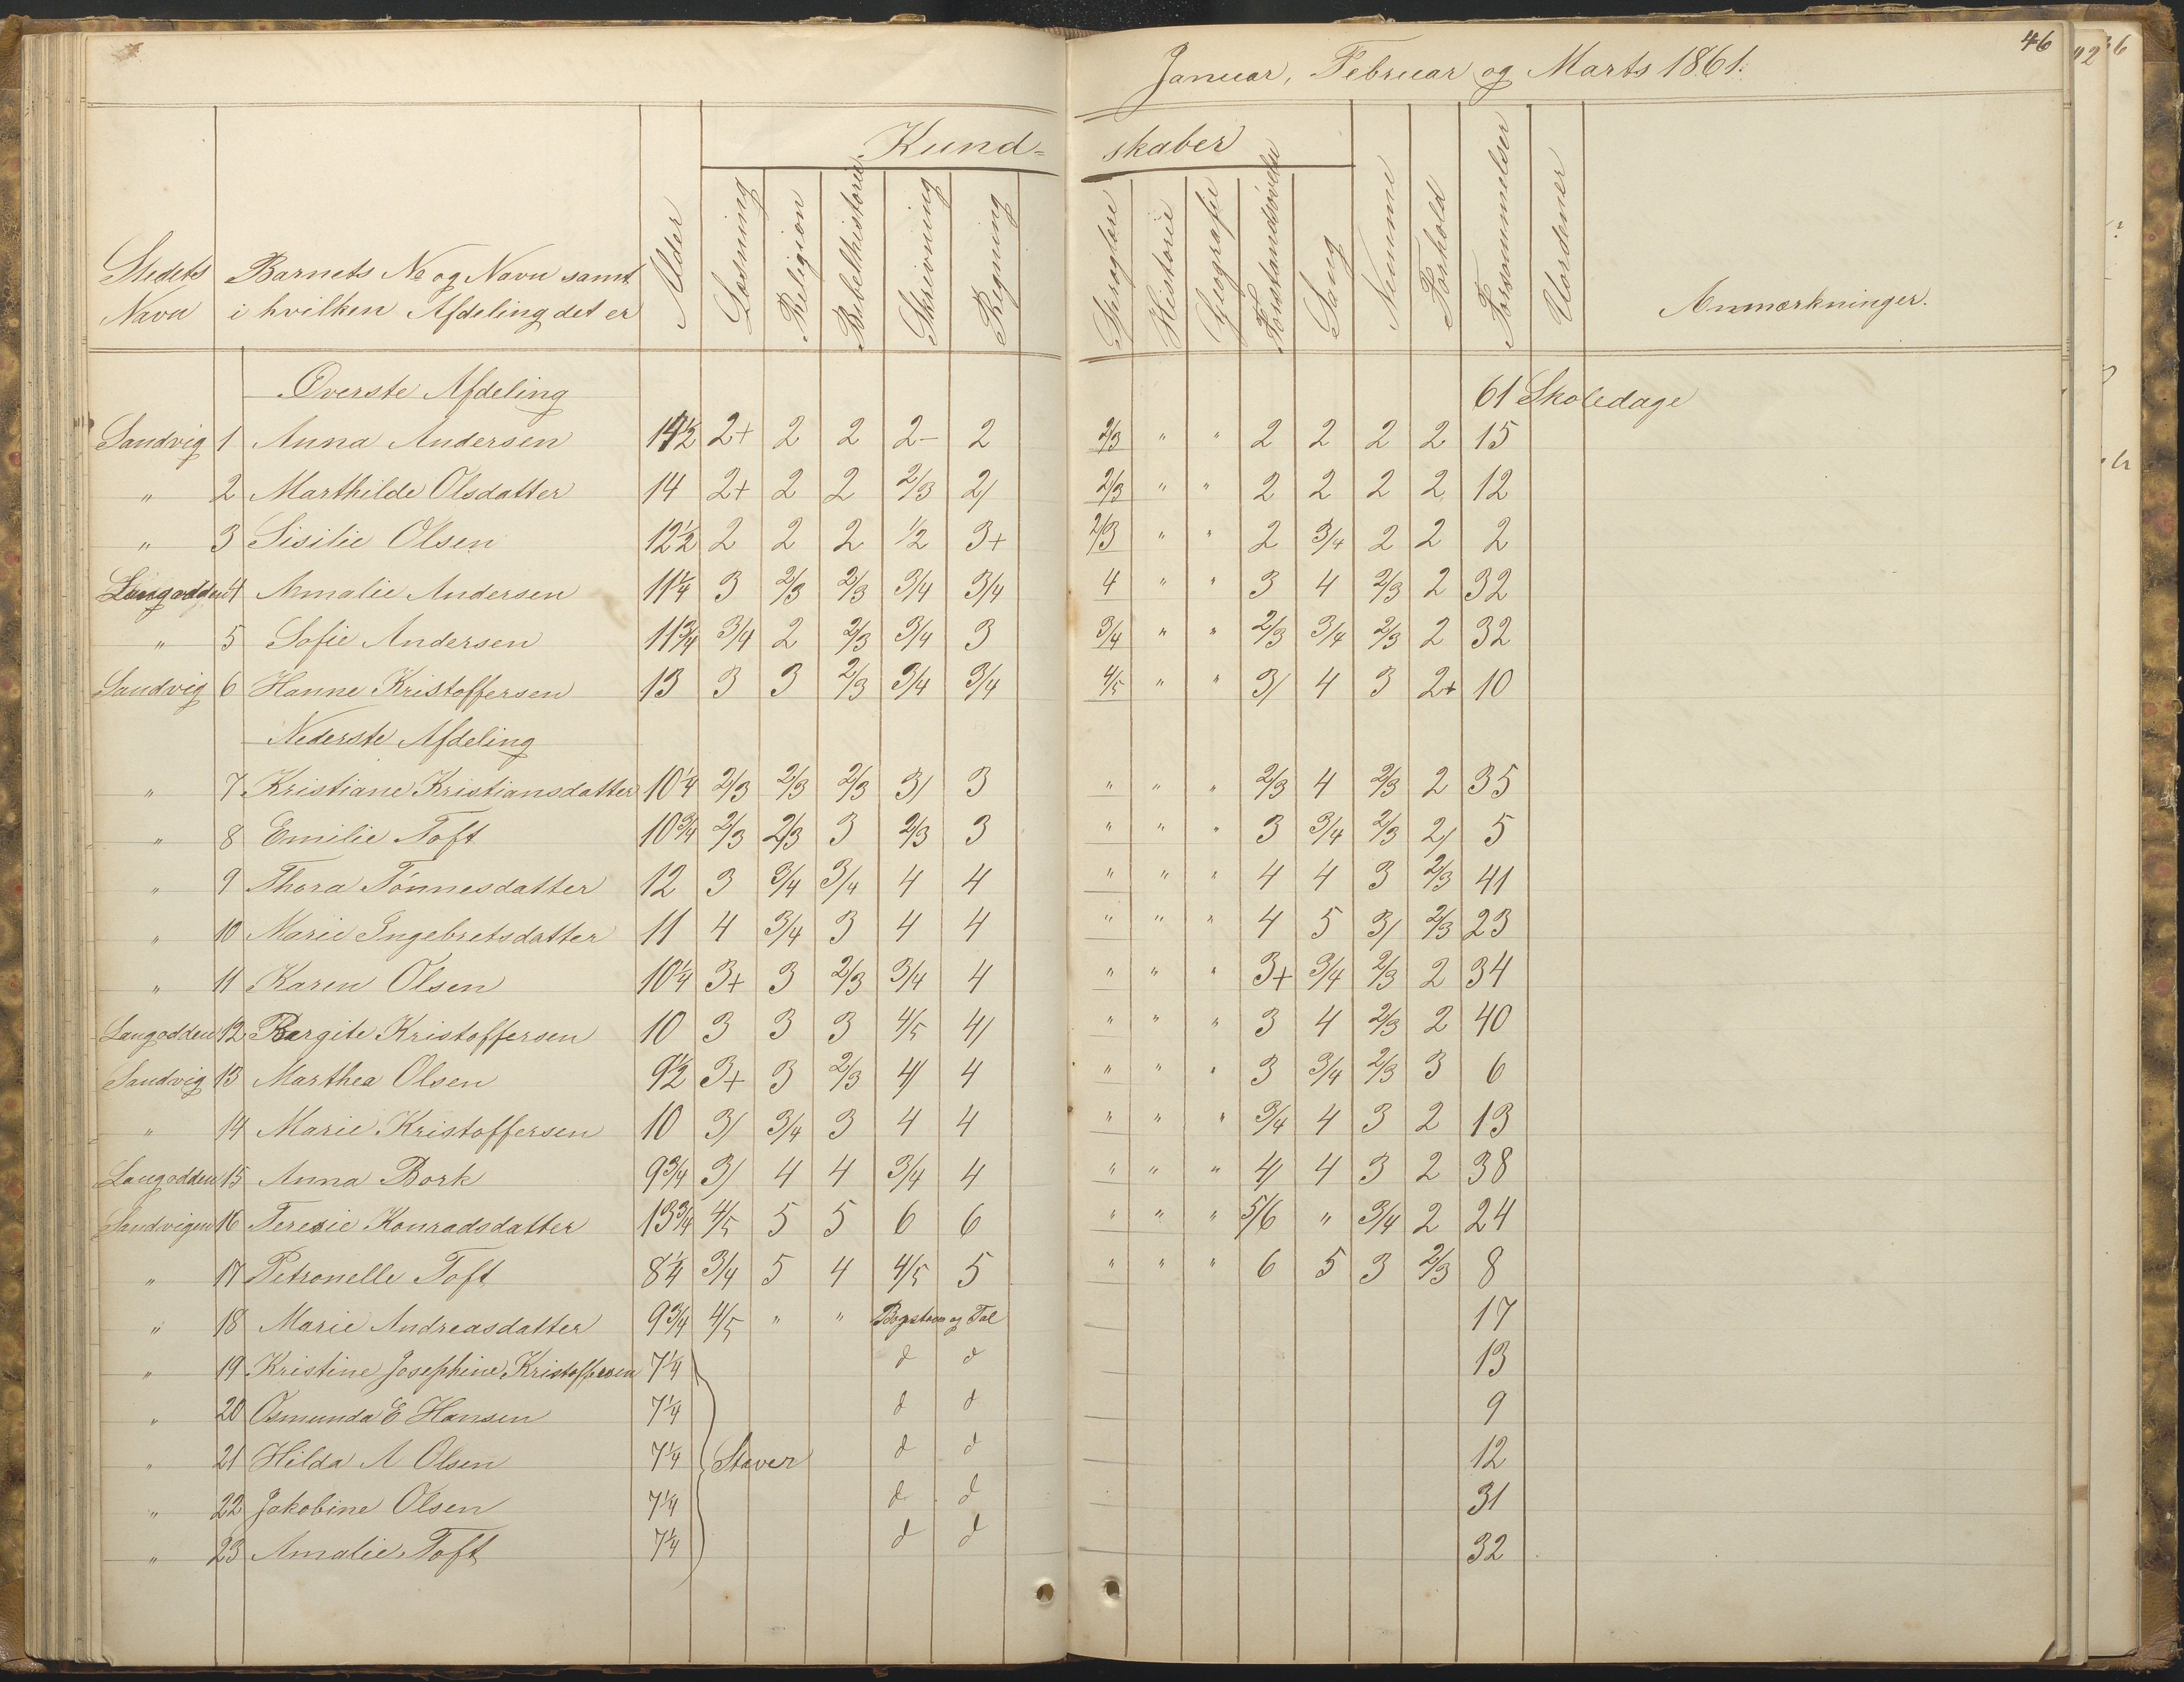 46
Januar, Februar og Marts 1861.
Kund- skaber
Stedets Navn | Barnets No og Navn samt i hvilken Afdeling det er | Alder | Læsning | Religion | Bibelhistorie | Skrivning | Regning | Sproglære | Historie | Geografie | Forstandsøvelse | Sang | Nemme | Forhold | Forsømmelser | Uordener | Anmærkninger.
Øverste Afdeling 61 Skoledage
Sandvig 1 Anna Andersen 14½ 2+ 2 2 2- 2 2/3 " " 2 2 2 2 15
" 2 Marthilde Olsdatter 14 2+ 2 2 2/3 2/ 2/3 " " 2 2 2 2 12
" 3 Sisilie Olsen 12½ 2 2 2 1/2 3+ 2/3 " " 2 3/4 2 2 2
Langodden 4 Amalie Andersen 11¼ 3 2/3 2/3 3/4 3/4 4 " " 3 4 2/3 2 32
" 5 Sofie Andersen 11¾ 3/4 2 2/3 3/4 3 3/4 " " 2/3 3/4 2/3 2 32
Sandvig 6 Hanne Kristoffersen 13 3 3 2/3 3/4 3/4 4/5 " " 3/ 4 3 2+ 10
Nederste Afdeling
" 7 Kristiane Kristiansdatter 10¼ 2/3 2/3 2/3 3/ 3 " " " 2/3 4 2/3 2 35
" 8 Emilie Toft 10¾ 2/3 2/3 3 2/3 3 " " " 3 3/4 2/3 2/ 5
" 9 Thora Tønnesdatter 12 3 3/4 3/4 4 4 " " " 4 4 3 2/3 41
" 10 Marie Ingebretsdatter 11 4 3/4 3 4 4 " " " 4 5 3/ 2/3 23
" 11 Karen Olsen 10¼ 3+ 3 2/3 3/4 4 " " " 3+ 3/4 2/3 2 34
Langodden 12 Bergite Kristoffersen 10 3 3 3 4/5 4/ " " " 3 4 2/3 2 40
Sandvig 13 Marthea Olsen 9½ 3+ 3 2/3 4/ 4 " " " 3 3/4 2/3 3 6
" 14 Marie Kristoffersen 10 3/ 3/4 3 4 4 " " " 3/4 4 3 2 13
Langodden 15 Anna Bork 9¾ 3/ 4 4 3/4 4 " " " 4/ 4 3 2 38
Sandvigen 16 Teresie Konradsdatter 13¾ 4/5 5 5 6 6 " " " 5/6 " 3/4 2 24
" 17 Petronelle Toft 8¼ 3/4 5 4 4/5 5 " " " 6 5 3 2/3 8
" 18 Marie Andreasdatter 9¾ 4/5 " " Bogstaver og Tal 17
" 19 Kristine Josephine Kristoffersen 7¼ d d 13
" 20 Osmunda E Hansen 7¼ d d 9
" 21 Hilda A Olsen 7¼ Staver d d 12
" 22 Jakobine Olsen 7¼ d d 31
" 23 Amalie Toft 7¼ d d 32